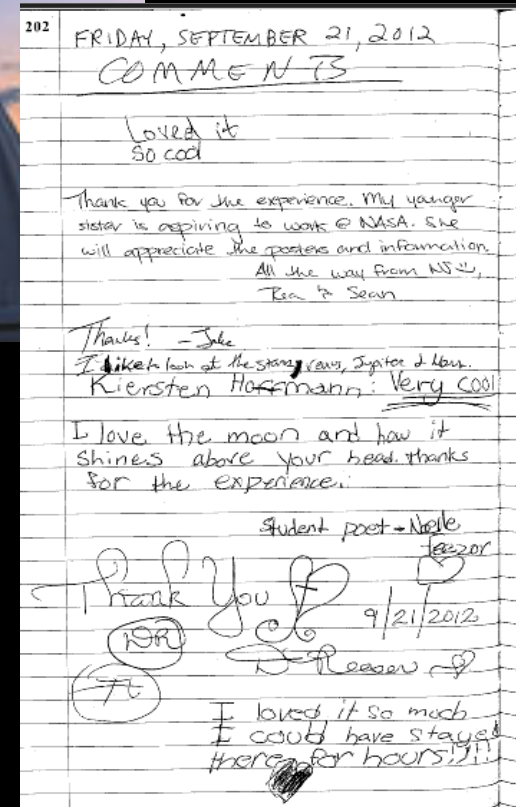 202
FRIDAY, SEPTEMBER 21, 2012
COMMENTS
Loved it
So cool
Thank you for the experience. My younger
sister is aspiring to work @ NASA. She
will appreciate the posters and information.
All the way from NJ
& Sean
Thanks! - Jake
I like to look at the stars, venus, Jupiter & Mars.
Kiersten Hoffmann: Very cool
I love the moon and how it
shines above your head. thanks
for the experience.
Student poet - Noelle
Thank You
9/21/2012
DR
D
I loved it so much
I could have stayed
there for hours!!!!